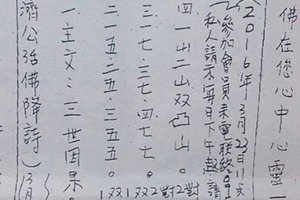 佛在您心中心靈一
(2016年3月23日11点
(參加會員来電联絡
私人請 每日下午 請
四一出二山双凸山。 2對
三.七.三.七.四.七七。 1双2對
三一五五.二五.三五五。 1双
一.主文:三世因果。
濟公活佛降詩)(3月